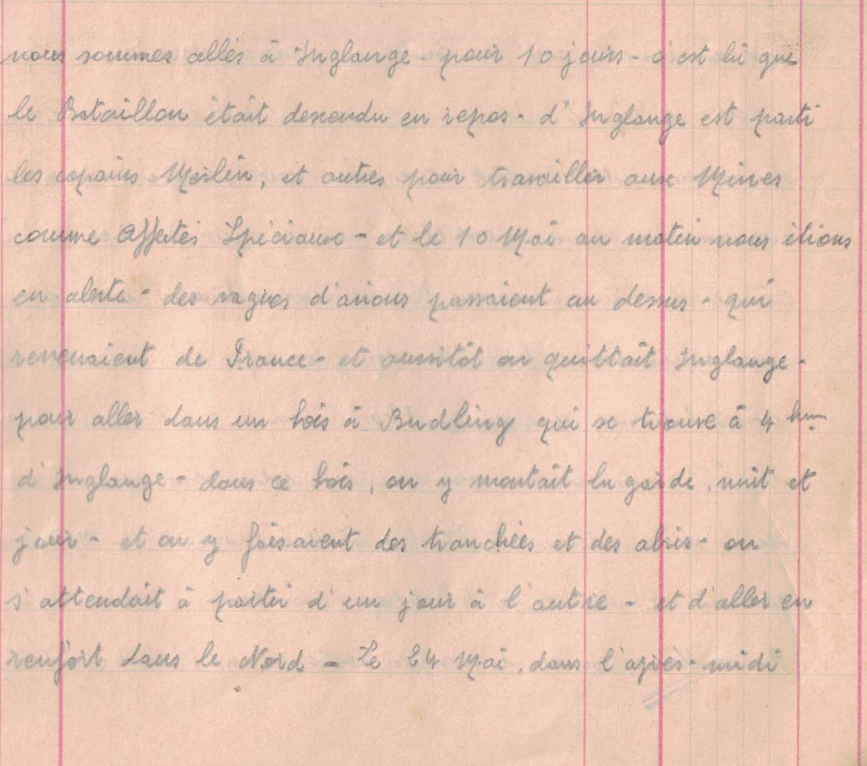 nous sommes allés à Inglange - pour 10 jours - c'est là que
le Bataillon était descendu en repos - d'Inglange est parti
les copains Merlin, et autres pour travailler aux Mines
comme Affectés Spéciaux - et le 10 Mai au matin nous étions
en alerte - des vagues d'avions passaient au dessus - qui
revenaient de France - et aussitôt on quittait Inglange -
pour aller dans un bois à Budling qui se trouve à 4 km
d'Inglange - dans ce bois, on y montait la garde, nuit et
jour - et on y faisaient des tranchées et des abris - on
s'attendait à partir d'un jour à l'autre - et d'aller en
renfort dans le Nord - Le 24 Mai, dans l'après-midi